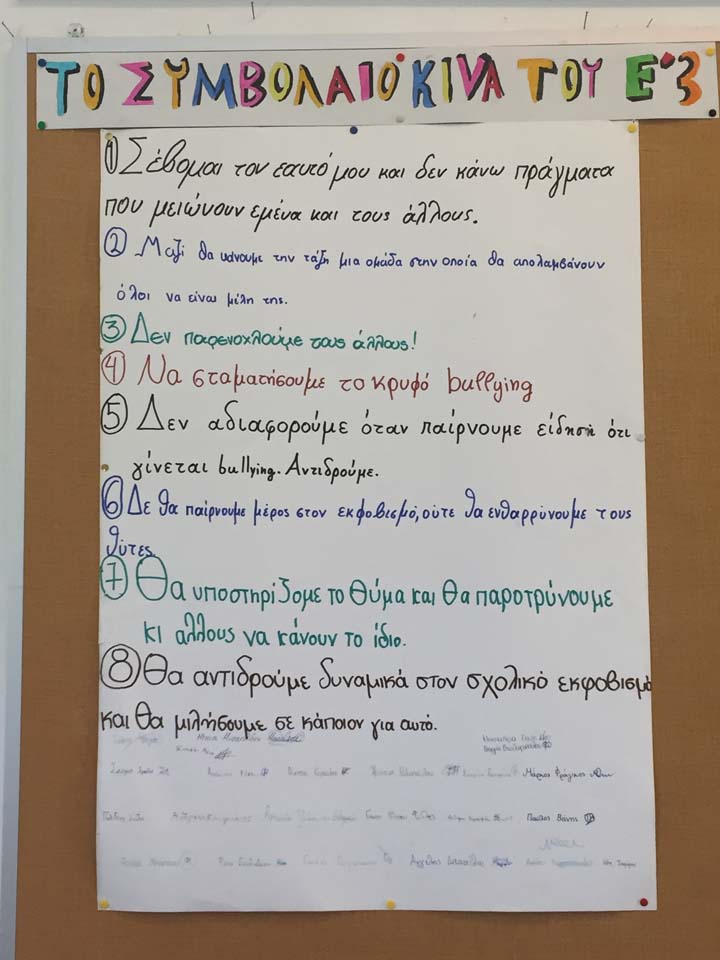 ΤΟ ΣΥΜΒΟΛΑΙΟ ΚΙVΑ ΤΟΥ Ε'3
1 Σέβομαι τον εαυτό μου και δεν κάνω πράγματα
που μειώνουν εμένα και τους άλλους.
2 Μαζί θα κάνουμε την τάξη μια ομάδα στην οποία θα απολαμβάνουν
όλοι να είναι μέλη της.
3 Δεν παρενοχλούμε τους άλλους!
4 Να σταματήσουμε το κρυφό bullying
5 Δεν αδιαφορούμε όταν παίρνουμε είδηση ότι
γίνεται bullying. Αντιδρούμε.
6 Δε θα παίρνουμε μέρος στον εκφοβισμό, ούτε θα ενθαρρύνουμε τους
θύτες.
7 Θα υποστηρίζομε το θύμα και θα παροτρύνουμε
κι αλλους να κάνουν το ίδιο.
8 Θα αντιδρούμε δυναμικά στον σχολικό εκφοβισμό
και θα μιλήσουμε σε κάποιον για αυτό.
Μάριος
Παύλος